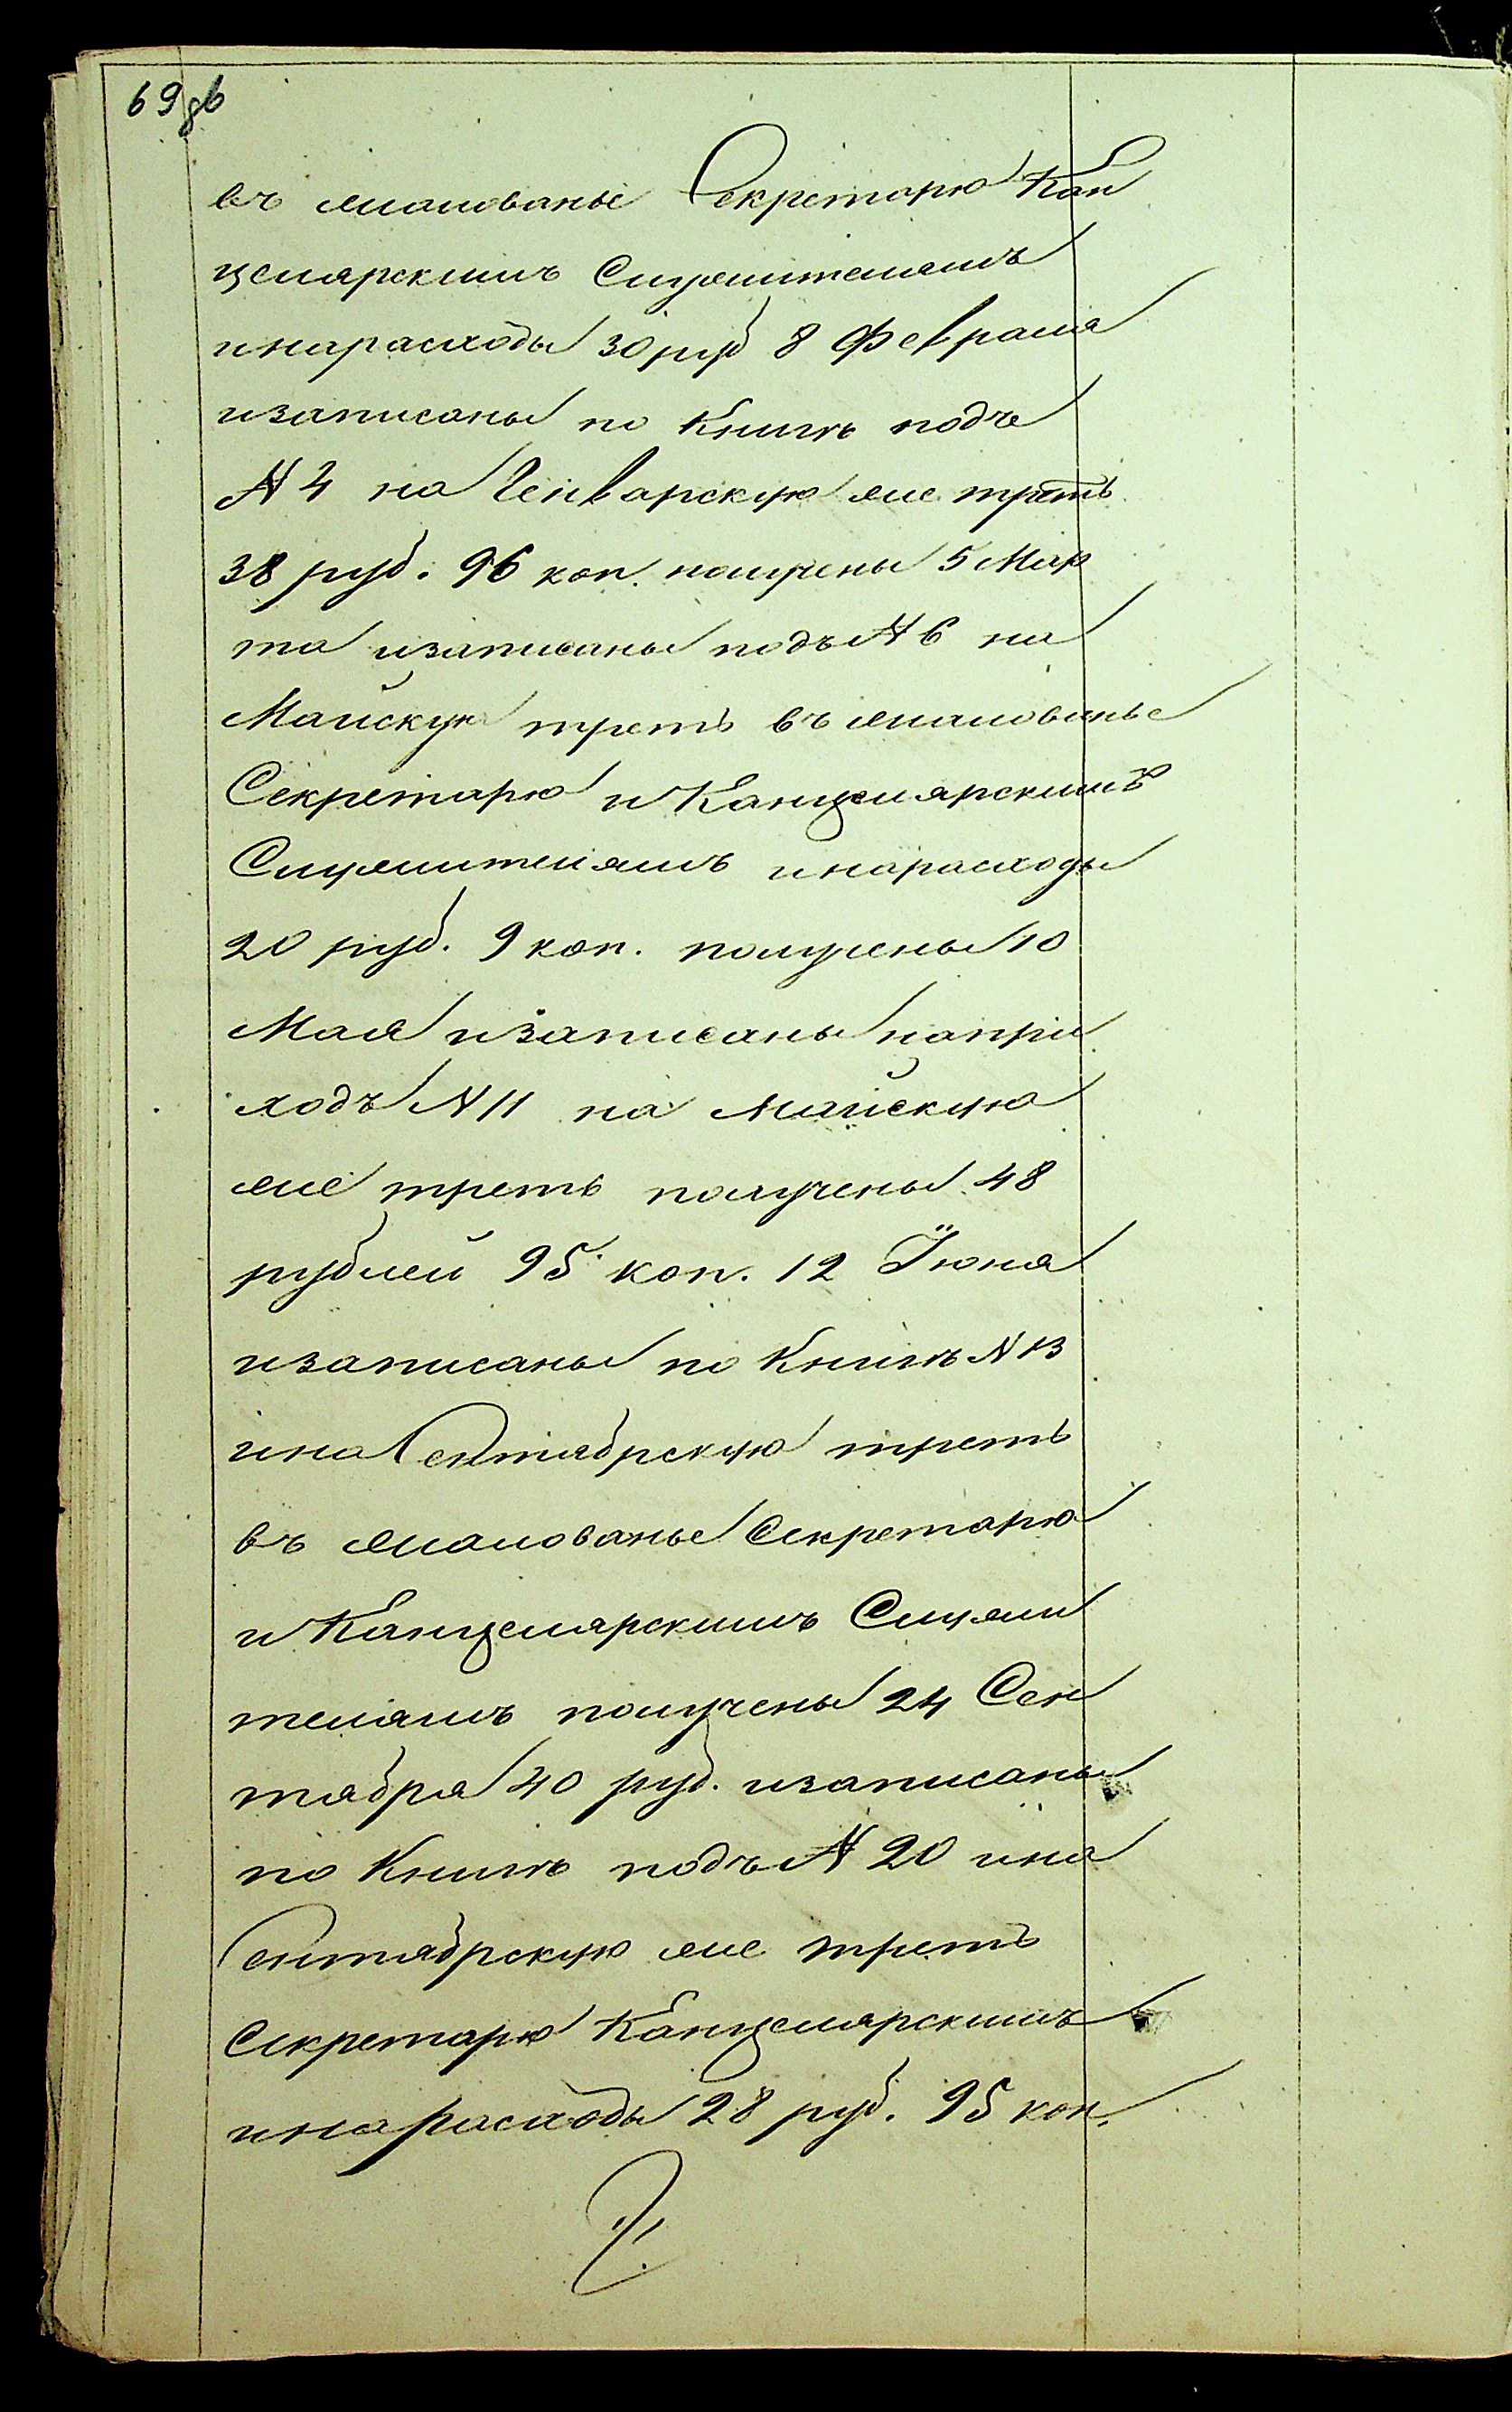 69 об
въ жалованье Секретарю Кан
целярскимъ Служителямъ
инарасходы 30 руб 8 Февраля
изаписаны по Книгѣ подъ
№ 4 на Генварскую же треть
38 руб. 96 коп. получены 5 Мар
та изаписаны подъ № 6 на
Майскую треть въ жалованье
Секретарю и Канцелярскимъ
Служителямъ инарасходы
20 руб. 9 коп. получены 10
Мая изаписаны напри
ходъ № 11 на Майскую
же треть получены 48
рублей 95 коп. 12 Іюня
изаписаны по Книгѣ № 13
ина Сентябрскую треть
въ жалованье Секретарю
и Канцелярскимъ Служи
телямъ получены 24 Сен
тября 40 руб. изаписаны
по Книгѣ подъ № 20 ина
Сентябрскую же треть
Секретарю Канцелярскимъ
инарасходы 28 руб. 95 коп.